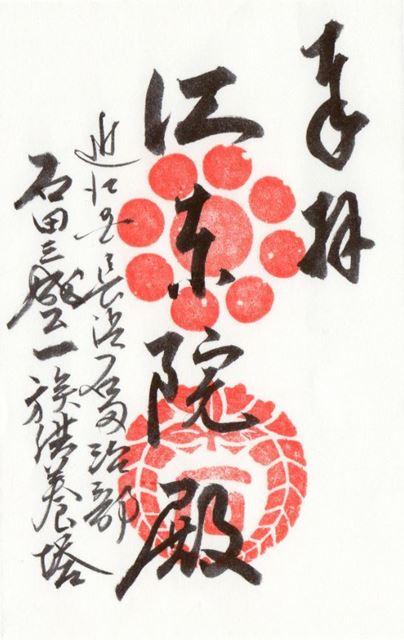 奉拝
江東院殿
近江国長浜石田治部
石田三成公一族供養塔